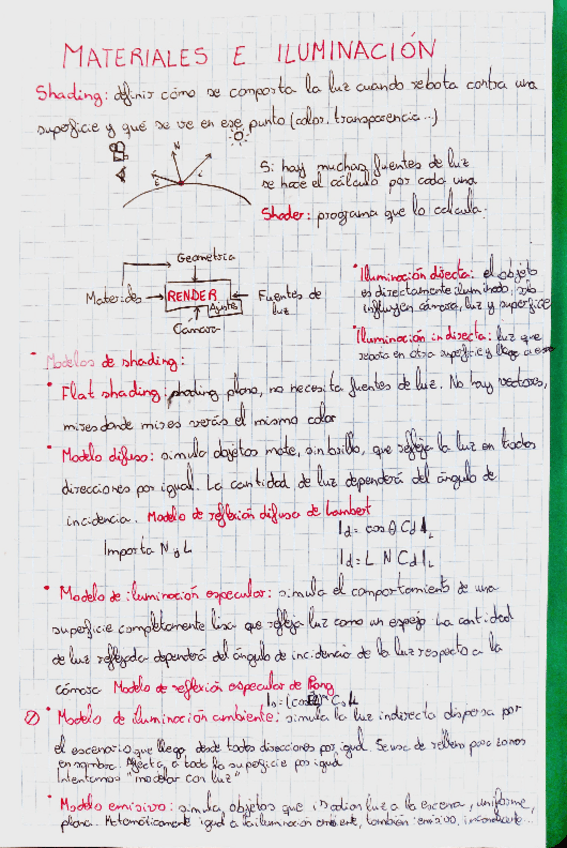 MATERIALES E ILUMINACIÓN
Shading: definir cómo se comporta la luz cuando rebota contra una
superficie y qué se ve en ese punto (color, transparencia...)
N
L
Si hay muchas fuentes de luz
se hace el cálculo por cada una
Shader: programa que lo calcula.
Geometría
Materiales
RENDER
Ajustes
Fuentes de
luz
Cámara
Iluminación directa: el objeto
es directamente iluminado, solo
influyen cámara, luz y superficie
Iluminación indirecta: luz que
rebota en otra superficie y llega a
Modelos de shading:
Flat shading: shading plano, no necesita fuentes de luz. No hay vectores,
mires donde mires verás el mismo color
Modelo difuso: simula objetos mate, sin brillo, que refleja la luz en todas
direcciones por igual. La cantidad de luz dependerá del ángulo de
incidencia. Modelo de reflexión difusa de Lambert
Importa N y L
Id = cos θ Cd IL
Id = L N Cd IL
Modelo de iluminación especular: simula el comportamiento de una
superficie completamente lisa que refleja luz como un espejo La cantidad
de luz reflejada dependerá del ángulo de incidencia de la luz respecto a la
cámara Modelo de reflexión especular de Pong
Modelo de iluminación ambiente: simula la luz indirecta dispersa por
el escenario que llega desde todas direcciones por igual. Se usa de relleno para zonas
en sombra. Afecta a toda la superficie por igual
Intentamos "modelar con luz"
Modelo emisivo: simula objetos que irradian luz a la escena, uniforme,
plana. Matemáticamente igual a la iluminación ambiente, también emisivo, incandescente...